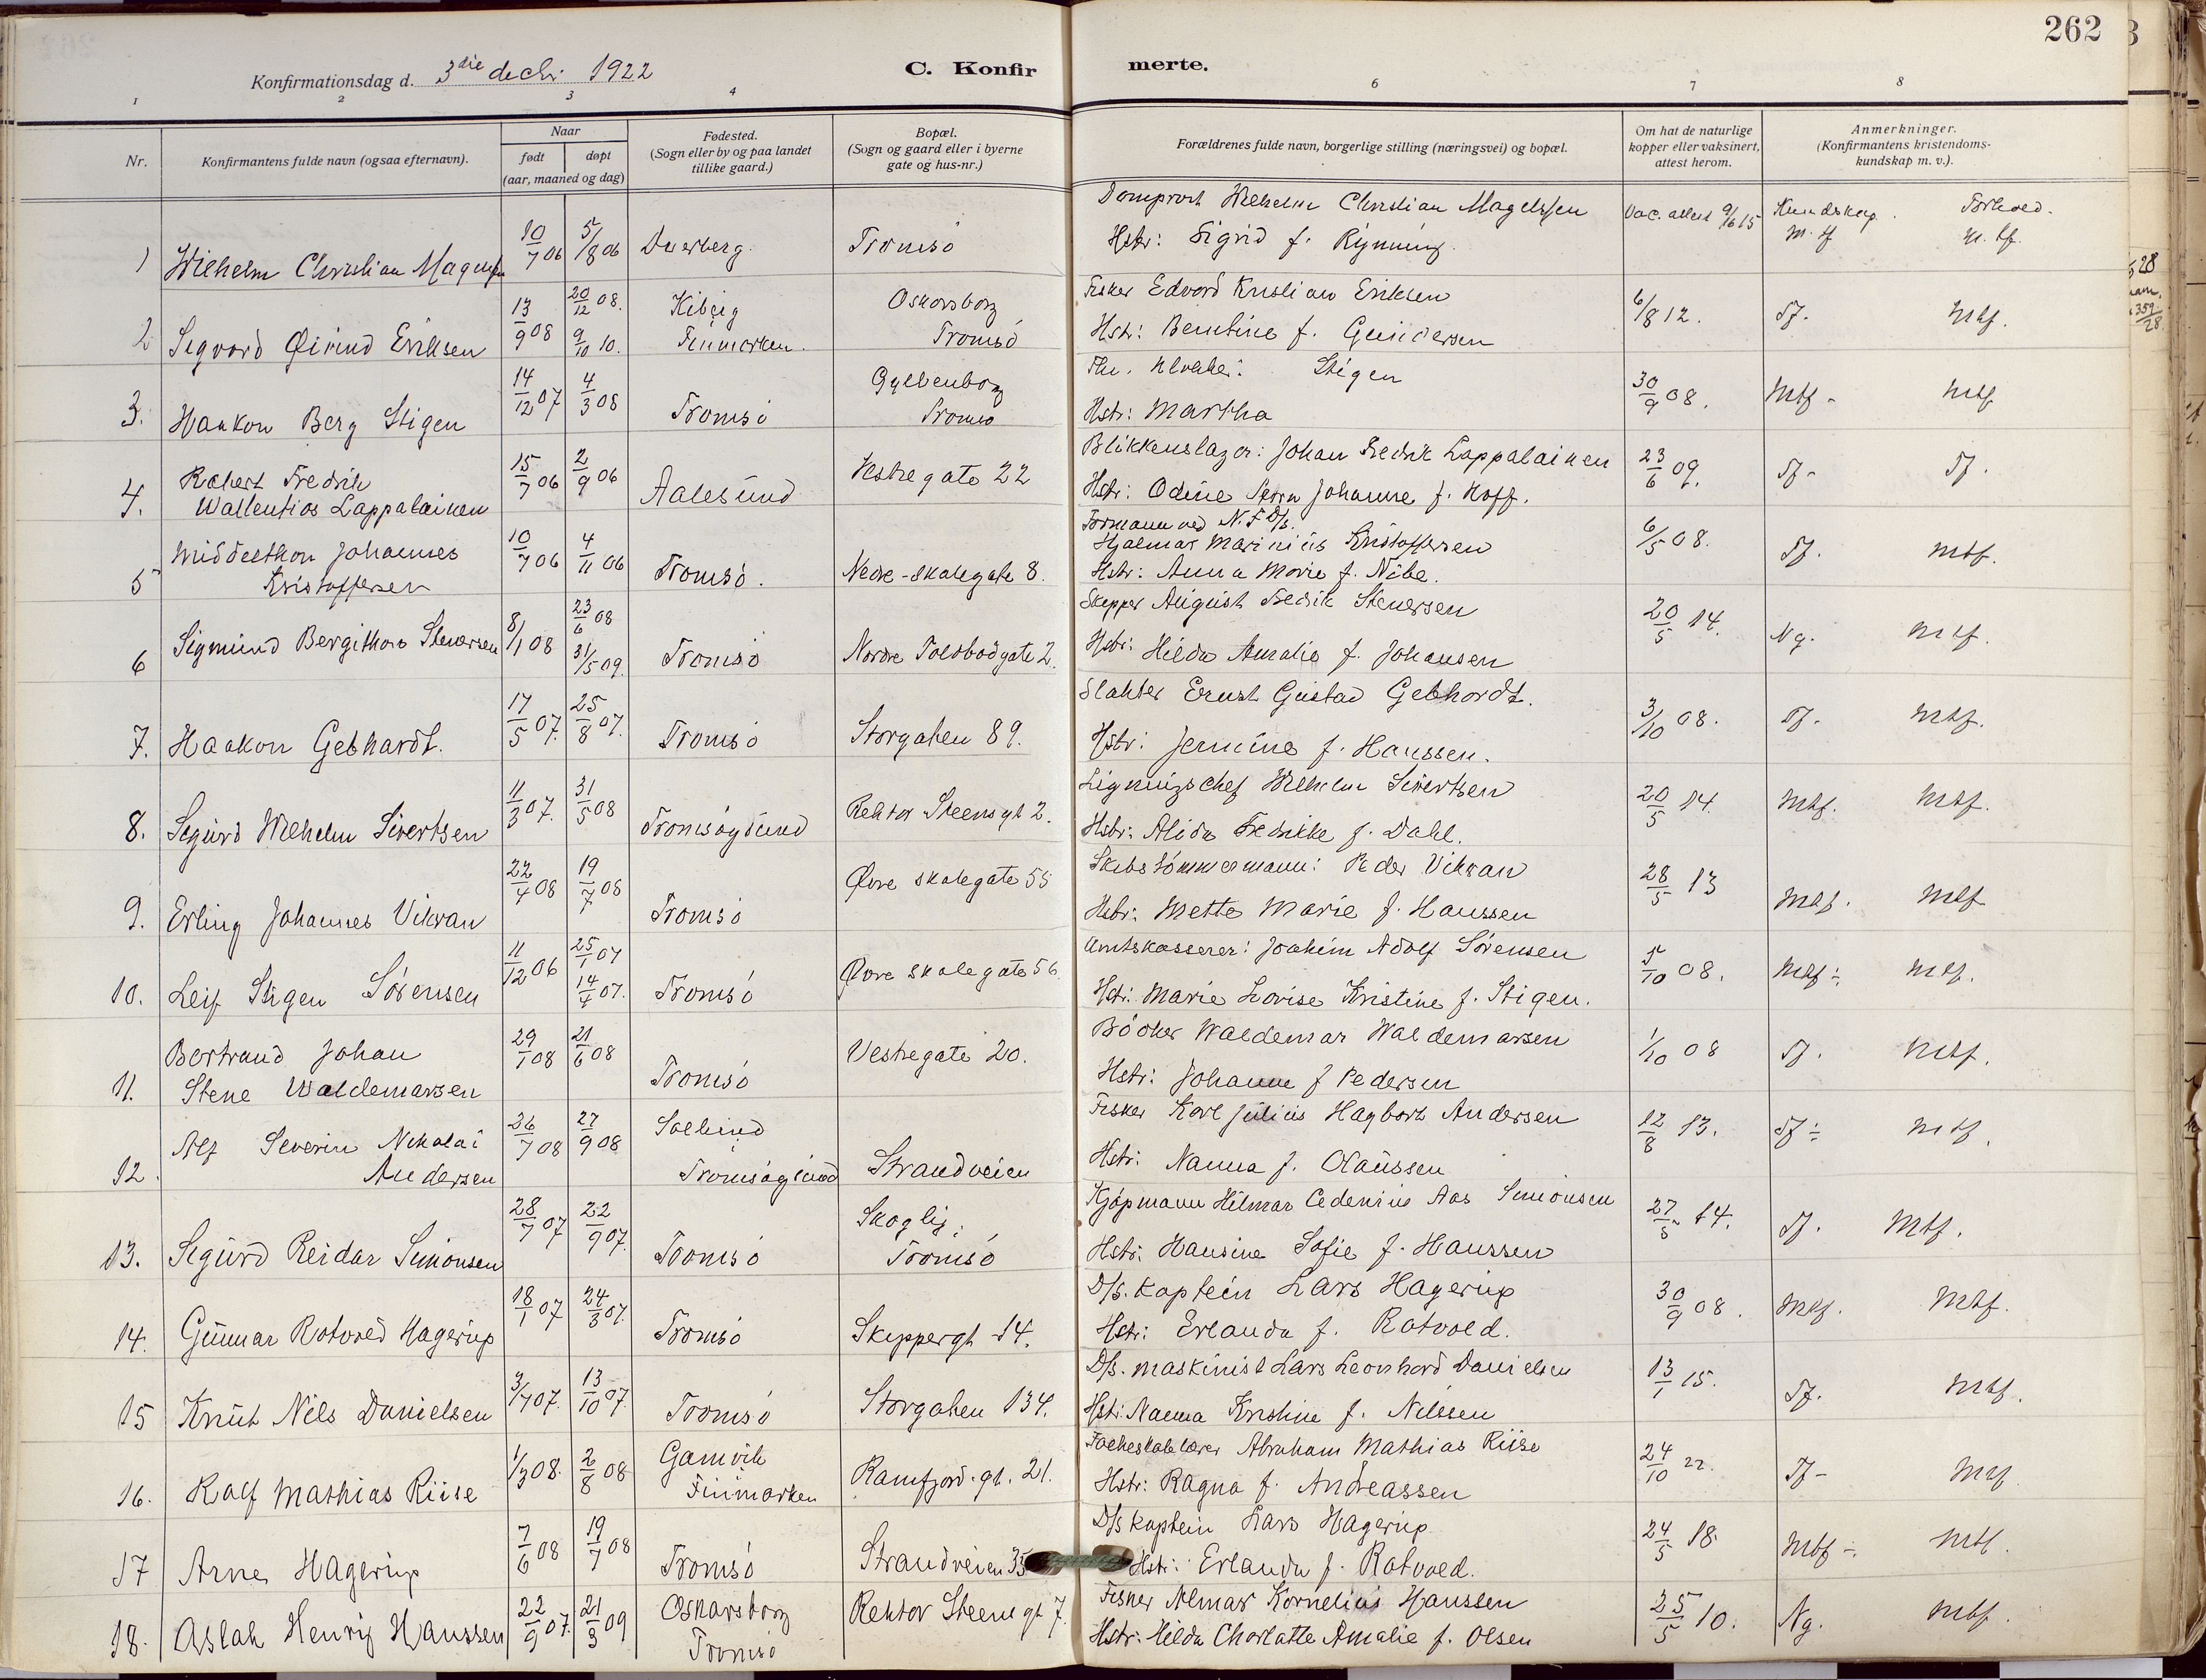 262
Konfirmationsdag d. 3die dechr. 1922
C. Konfir merte.
1 2 3 4 6 7 8
Nr.
Konfirmantens fulde navn (ogsaa efternavn).
Naar
født døpt
(aar, maaned og dag)
Fødested.
(Sogn eller by og paa landet
tillike gaard.)
Bopæl.
(Sogn og gaard eller i byerne
gate og hus-nr.)
Forældrenes fulde navn, borgerlige stilling (næringsvei) og bopæl.
Om hat de naturlige
kopper eller vaksinert,
attest herom.
Anmerkninger.
(Konfirmantens kristendoms-
kundskap m. v.).
Domprost Wilhelm Christian Magelssen
1 Wilhelm Christian Magelssen 10/7 06 5/8 06 Tromsö Hstr: Sigrid f. Rynning. Vac. attest 9/6 15 Kundskap. Forhold.
M. tf. M. tf.
Fisker Edvard Kristian Eriksen
2 Sigvard Øivind Eriksen 13/9 08 20/12 08. 9/10 10. Kiberg Finmarken. Oskarsborg Tromsö Hstr: Berntine f. Gundersen 6/8 12. Tf. Mtf.
Stigen
3. Haakon Berg Stigen 14/12 07 4/3 08 Tromsö Gyllenborg Tromsö Hstr: Martha 30/9 08. Mtf - Mtf
Blikkenslager: Johan Fredrik Lappalainen
4. Robert Fredrik
Wallentios Lappalainen 15/7 06 2/9 06 Aalesund Vestregate 22 Hstr: Odine Petra Johanne f. Hoff. 23/6 09. Tf - Tf.
Formann ved N. F. D/s.
Hjalmar Marinius Kristoffersen
5 Middelthon Johannes
Kristoffersen 10/7 06 4/11 06 Tromsö. Nedre-skolegate 8. Hstr: Anna Marie f. Nibe. 6/5 08. Tf. Mtf.
Skipper August Fredrik Stenersen
6 Sigmund Bergithon Stenersen 8/1 08 23/6 08 31/5 09. Tromsö Nordre Toldbodgate 2. Hstr: Hilda Amalie f. Johansen 20/5 14. Ng. Mtf.
Slakter Ernst Gustad Gebhardt.
7. Haakon Gebhardt. 17/5 07. 25/8 07. Tromsö Storgaten 89. Hstr: Jermine f. Hanssen. 3/10 08. Tf. Mtf.
Ligningschef Wilhelm Sivertsen
8. Sigurd Wilhelm Sivertsen 11/3 07. 31/5 08 Tromsöysund Rektor Steens gt 2. Hstr: Alida Fredrikke f. Dahl. 20/5 14. Mtf. Mtf.
Skibstömmermann: Peder Vikran
9. Erling Johannes Vikran 22/4 08 19/7 08 Tromsö Øvre skolegate 55 Hstr: Mette Marie f. Hanssen 28/5 13 Mtf. Mtf
Amtskasserer: Joakim Adolf Sörensen
10. Leif Stigen Sörensen 11/12 06 25/1 07 14/4 07. Tromsö Øvre skolegate 56 Hstr: Marie Lovise Kristine f. Stigen. 5/10 08. Mtf ÷ Mtf.
Böcker Waldemar Waldemarsen
11. Bertrand Johan
Stene Waldemarsen 29/1 08 21/6 08 Tromsö Vestregate 20. Hstr: Johanne f Pedersen 1/10 08 Tf. Mtf.
Fisker Karl Julius Hagbart Andersen
12. Alf Severin Nikolai
Andersen 26/7 08 27/9 08 Tromsöysund Strandveien Hstr: Nanna f. Olaussen 12/8 13. Tf ÷ Mtf.
Kjöpmann Hilmar Cedenius Aas Simonsen
13. Sigurd Reidar Simonsen 28/7 07 22/9 07. Tromsö Skoglij. Tromsö Hstr. Hansine Sofie f. Hanssen 27/5 14. Tf. Mtf.
D/s. Kaptein Lars Hagerup
14. Gunnar Rotvold Hagerup 18/1 07 24/3 07. Tromsö Skippergt 14. Hstr: Erlanda f. Rotvold. 30/9 08. Mtf. Mtf.
D/s. maskinist Lars Leonhard Danielsen
15 Knut Nils Danielsen 3/7 07. 13/10 07. Tromsö Storgaten 134. Hstr: Nanna Kristine f. Nilssen 13/1 15. Tf. Mtf.
Folkeskolelærer Abraham Mathias Riise
16. Rolf Mathias Riise 1/3 08. 2/8 08 Gamvik Finmarken Ramfjord. gt. 21. Hstr: Ragna f. Andreassen 24/10 22. Tf - Mtf
D/s Kaptein Lars Hagerup
17 Arne Hagerup 7/6 08 19/7 08 Tromsö Strandveien 35 Hstr: Erlanda f. Rotvold. 24/5 18. Mtf ÷. Mtf.
Fisker Almar Kornelius Hanssen
18. Aslak Henrij Hanssen 22/9 07. 21/3 09 Oskarsborg Tromsö Rektor Steens gt 7. Hstr: Hilda Charlotte Amalie f. Olsen 25/5 10. Ng. Mtf.